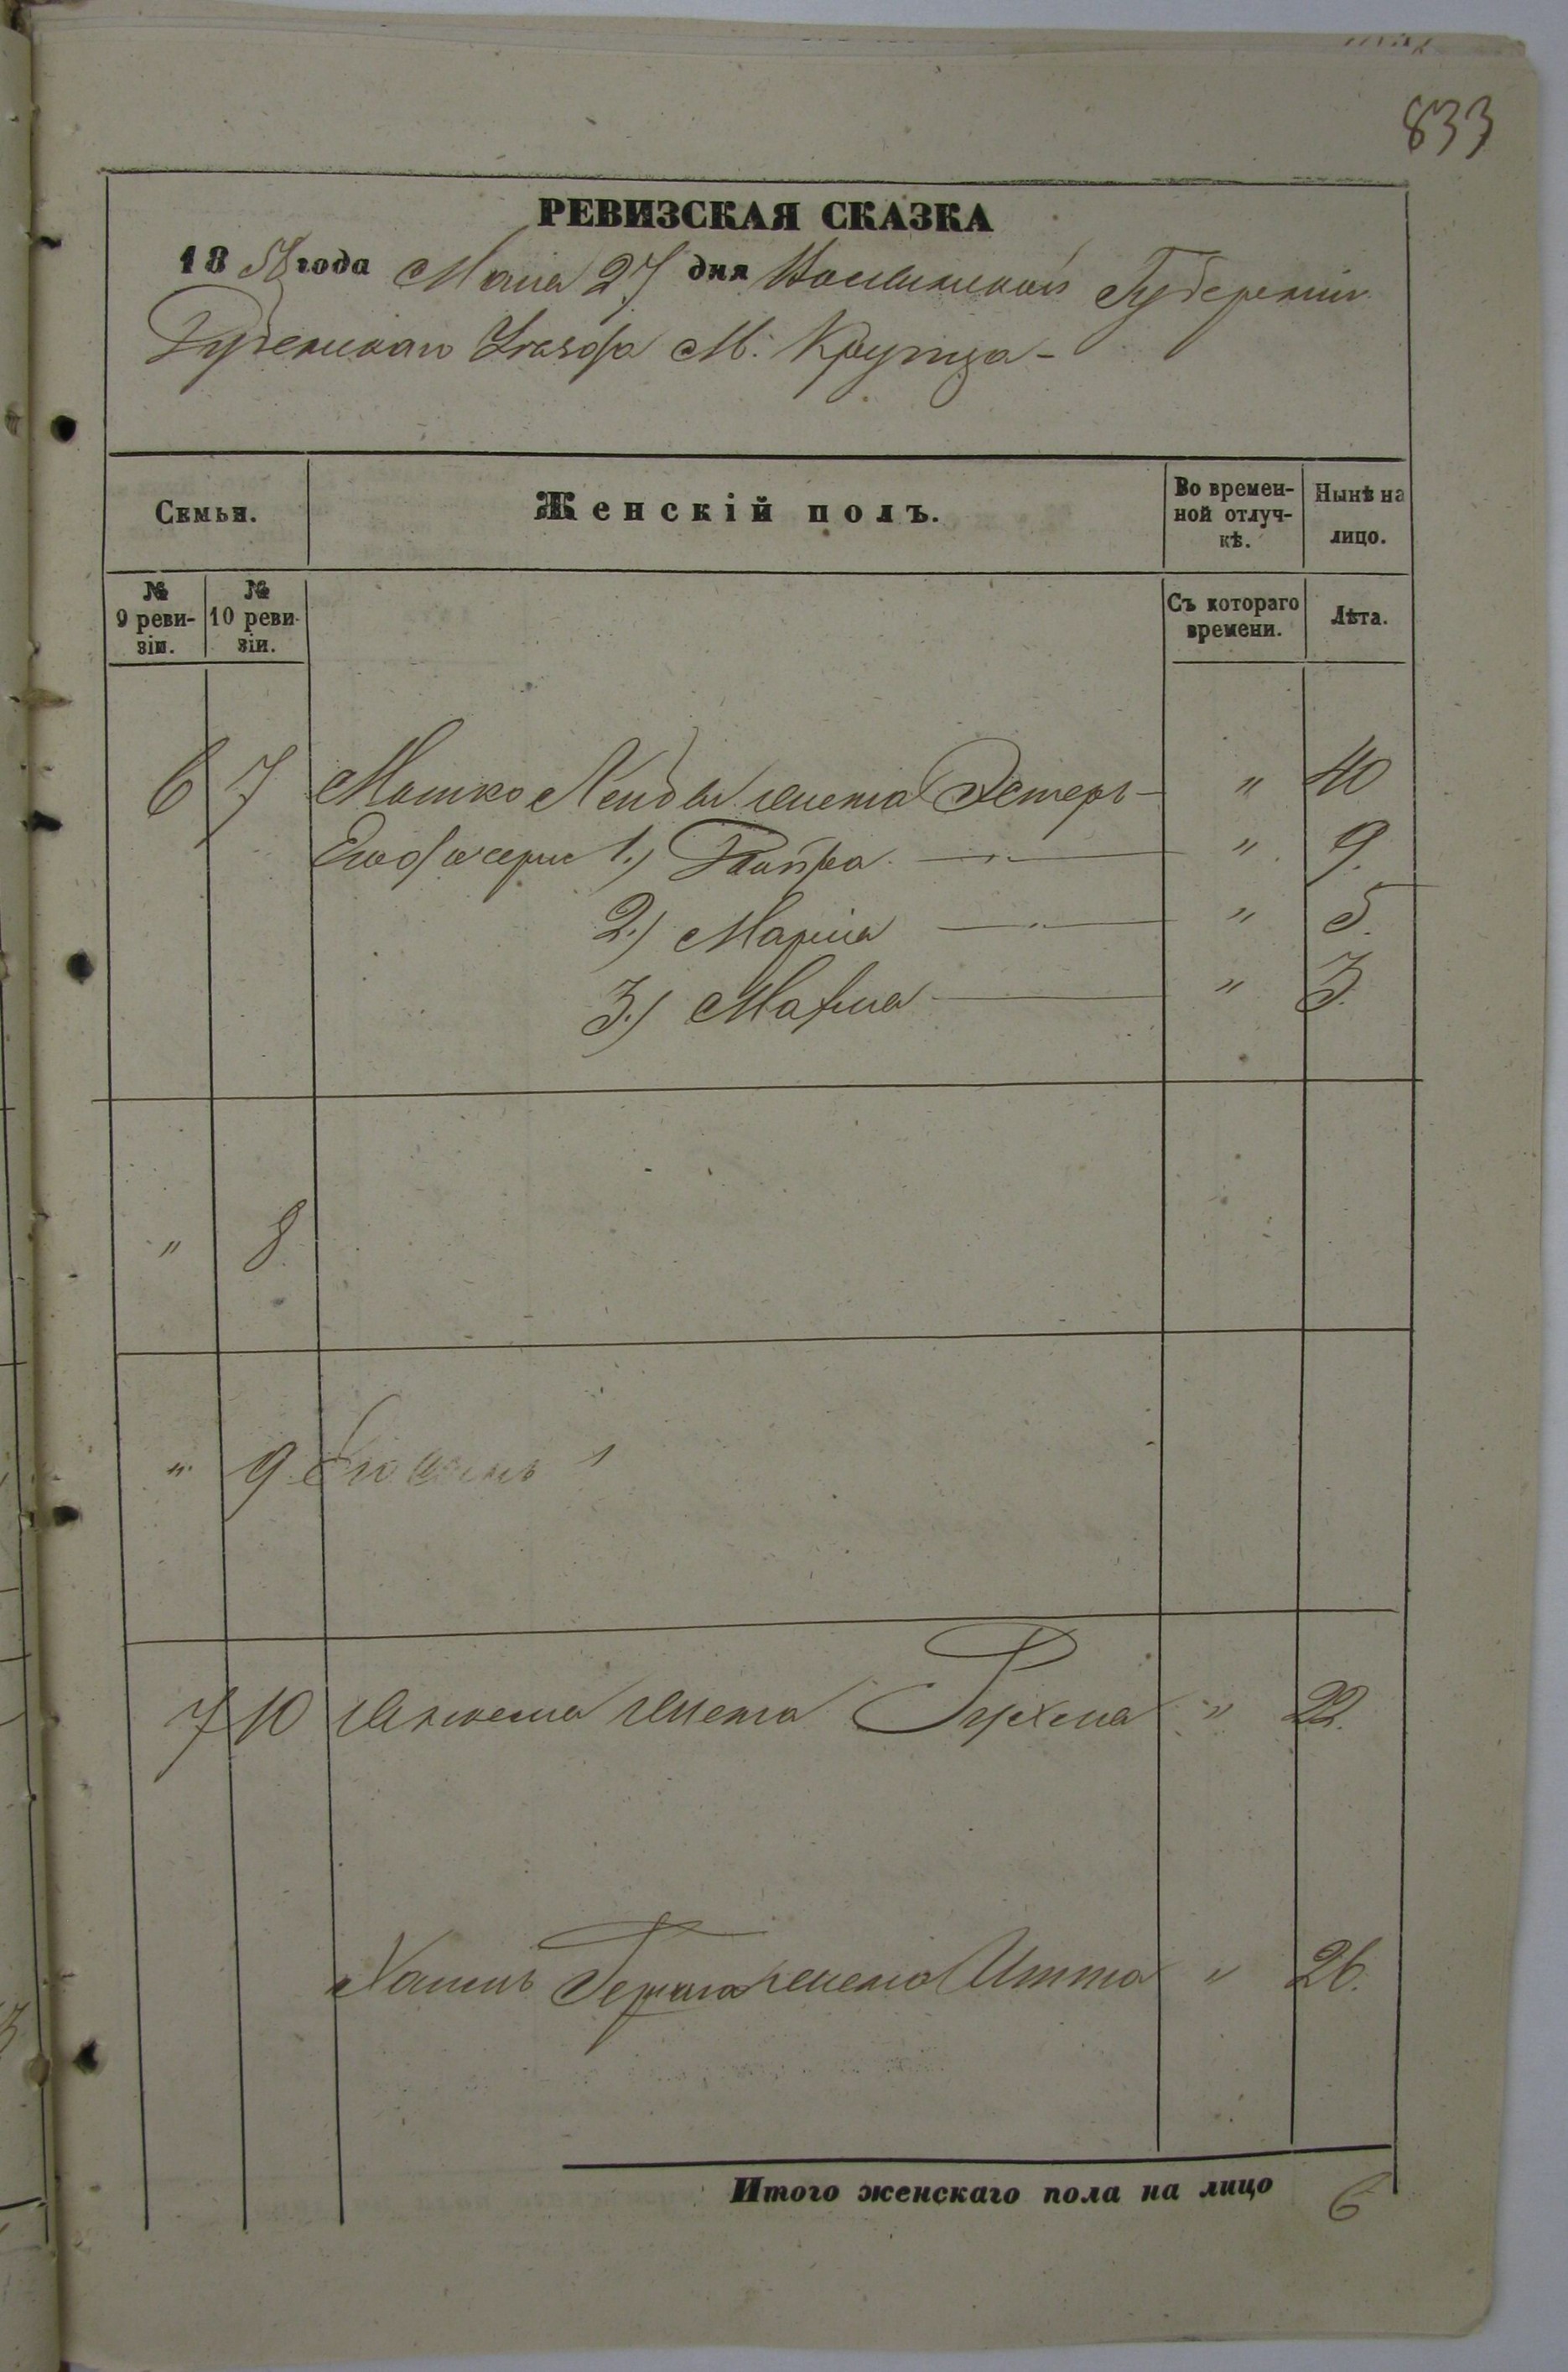 833
РЕВИЗСКАЯ СКАЗКА
1858 года Маія 27 дня Волынской Губерніи
Дубенскаго Уѣзда М. Крупца -
Семьи.
Женскій полъ.
Во времен-
ной отлуч-
кѣ.
Нынѣ на
лицо.
№
9 реви-
зіи.
№
10 реви-
зіи.
Съ котораго
времени.
Лѣта.
6 7 Мошко Лейбы жена Эстеръ - " 40
Его дочери 1.) " 9.
2.) Маріа " 5.
3.) " 3.
" 8
" 9
7 10 жена Рухля " 22.
жена Итта " 26.
Итого женскаго пола на лицо 6